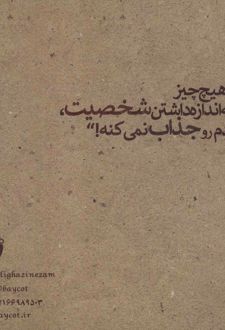 هیچ چیز
ه‌اندازه داشتن شخصیت،
دم رو جذاب نمی کنه!“
lighazinezam
baycot
۲۱۶۶۹۸۹۵۰۳
aycot.ir